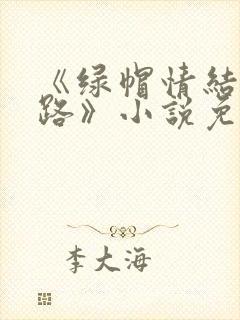 《绿帽情结
路》小说免
李大海